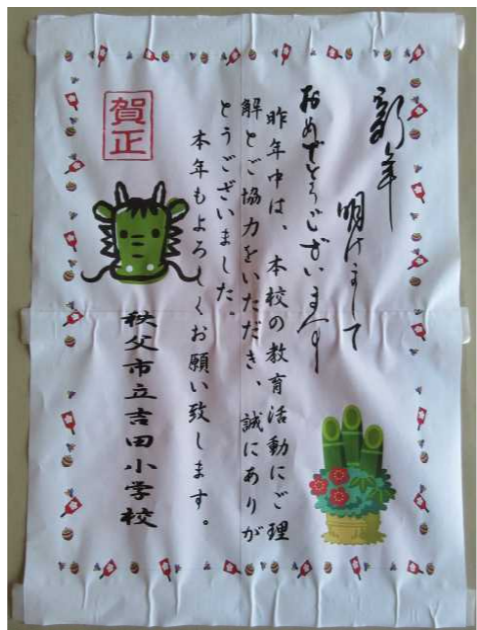 新年
明けまして
おめでとうございます
昨年中は、本校の教育活動にご理
解とご協力をいただき、誠にありが
とうございました。
本年もよろしくお願い致します。
賀正
秩父市立吉田小学校